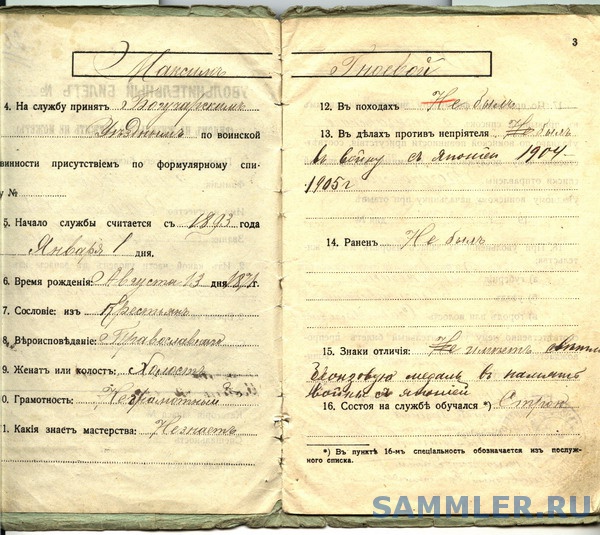 Максимъ
4. На службу принятъ Богучарскимъ
Уѣзднымъ по воинской
винности присутствіемъ по формулярному спи-
у №
5. Начало службы считается съ 1893 года
Января 1 дня.
6. Время рожденія: Августа 13 дня 1871 г.
7. Сословіе: изъ Крестьянъ
8. Вѣроисповѣданіе: Православнаго
9. Женатъ или холостъ: Холостъ
0. Грамотность: Неграмотный
1. Какія знаетъ мастерства: Незнаетъ
3
Гноевой
12. Въ походахъ Не былъ
13. Въ дѣлахъ противъ непріятеля Не былъ
въ войну съ Японіей 1904-
1905 г
14. Раненъ Не былъ
15. Знаки отличія: Не имѣетъ
бронзовую медаль въ память
войны съ Японіей
16. Состоя на службѣ обучался *) Строю
*) Въ пунктѣ 16-мъ спеціальность обозначается изъ послуж-
ного списка.
SAMMLER.RU